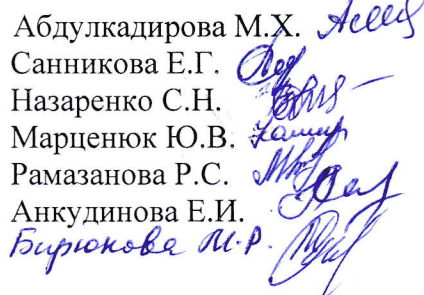 Абдулкадирова М.Х.
Санникова Е.Г.
Назаренко С.Н.
Марценюк Ю.В.
Рамазанова Р.С.
Анкудинова Е.И.
Бирюкова М.Р.